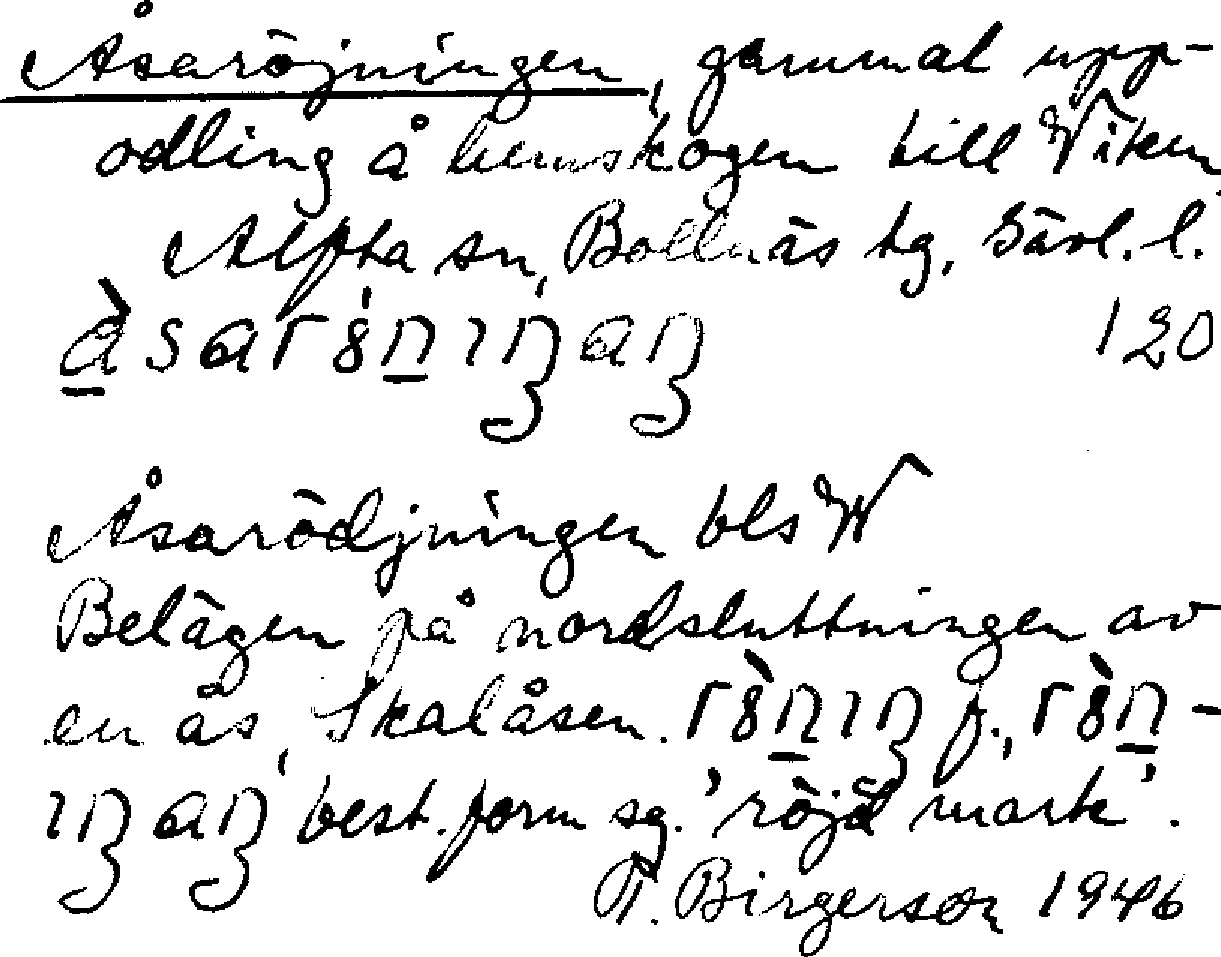 Åsaröjningen, gammal upp-
odling å hemskogen till Viken
Alfta sn, Bollnäs tg, Gävl. l.
120
Åsarödjningen bls W
Belägen på nordsluttningen av
en ås, Skalåsen. f.,
best. form sg. 'röjd mark'.
T. Birgerson 1946